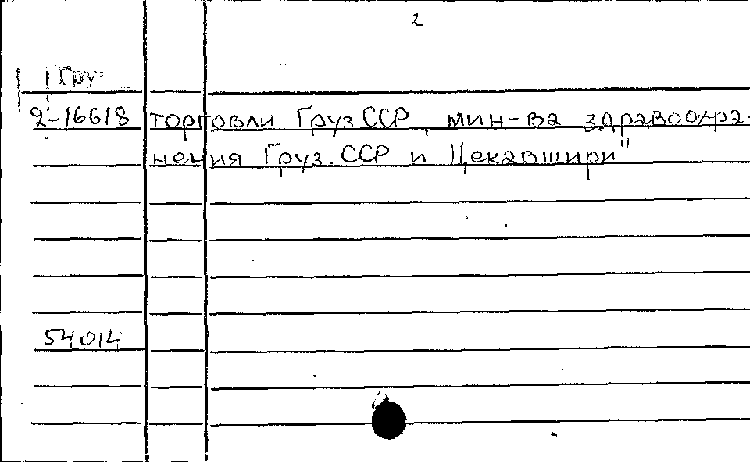 2
Гру
2-16618 торговли Груз ССР, мин-ва здравоохра-
нения Груз. ССР и Цекавшири"
54014